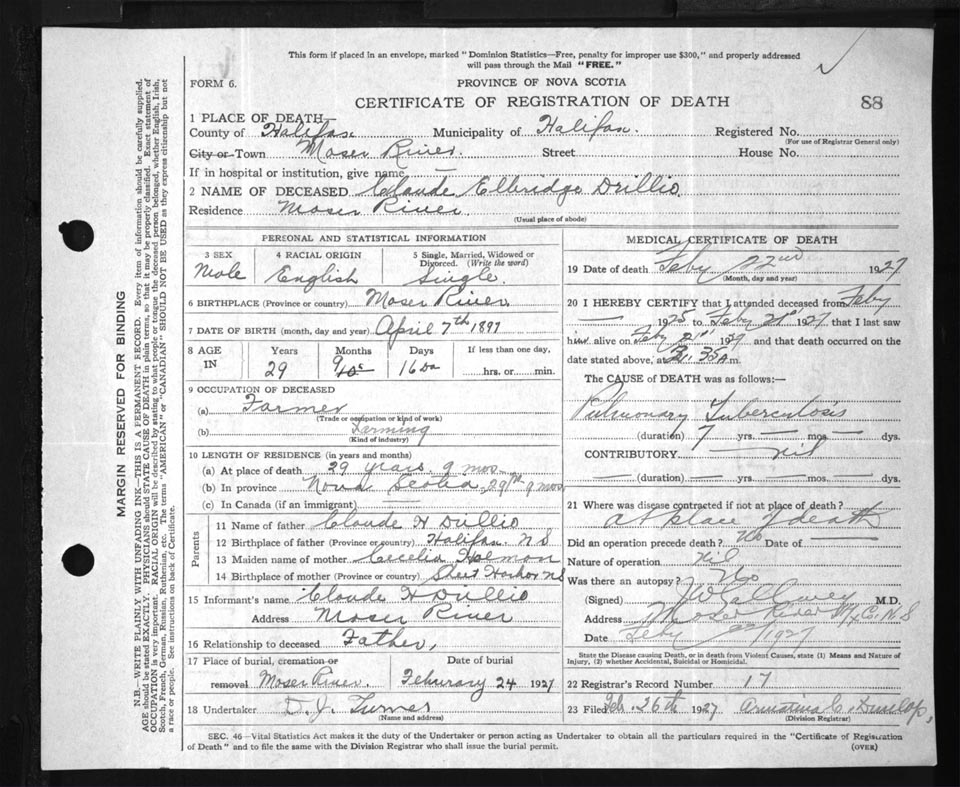 This form if placed in an envelope, marked "Dominion Statistics—Free, penalty for improper use $300," and properly addressed
will pass through the Mail "FREE."
FORM 6.
PROVINCE OF NOVA SCOTIA
CERTIFICATE OF REGISTRATION OF DEATH
88
1 PLACE OF DEATH
County of Halifax Municipality of Halifax. Registered No.
(For use of Registrar General only)
City or Town Moser River Street House No.
If in hospital or institution, give name
2 NAME OF DECEASED Claude Elbridge Drillio
Residence Moser River
(Usual place of abode)
PERSONAL AND STATISTICAL INFORMATION
3 SEX 4 RACIAL ORIGIN 5 Single, Married, Widowed or
Divorced. (Write the word)
Male English Single
6 BIRTHPLACE (Province or country) Moser River
7 DATE OF BIRTH (month, day and year) April 7th 1897
8 AGE IN Years Months Days If less than one day,
29 16 hrs. or min.
9 OCCUPATION OF DECEASED
(a) Farmer
(Trade or occupation or kind of work)
(b) Farming
(Kind of industry)
10 LENGTH OF RESIDENCE (in years and months)
(a) At place of death 29 years 9 mos
(b) In province Nova Scotia 29 9 mos
(c) In Canada (if an immigrant)
Parents
11 Name of father Claude H Drillio
12 Birthplace of father (Province or country) Halifax N S
13 Maiden name of mother Cecelia
14 Birthplace of mother (Province or country) Sheet Harbor NS
15 Informant's name Claude H Drillio
Address Moser River
16 Relationship to deceased Father,
17 Place of burial, cremation or Date of burial
removal Moser River Feburary 24 1927
18 Undertaker D. J. Turner
(Name and address)
MEDICAL CERTIFICATE OF DEATH
19 Date of death Feby 22nd 1927
(Month, day and year)
20 I HEREBY CERTIFY that I attended deceased from Feby
1925 to Feby 21st 1927 that I last saw
him alive on Feby 21st 19 and that death occurred on the
date stated above, at 35 A m.
The CAUSE OF DEATH was as follows:—
Pulmonary Tuberculosis
(duration) 7 yrs. — mos. — dys.
CONTRIBUTORY nil
(duration) yrs. mos. dys.
21 Where was disease contracted if not at place of death?
at place of death
Did an operation precede death? No Date of —
Nature of operation nil
Was there an autopsy? No
(Signed) M.D.
Address Moser River Hx Co. N.S
Date Feby 22/1927
State the Disease causing Death, or in death from Violent Causes, state (1) Means and Nature of
Injury, (2) whether Accidental, Suicidal or Homicidal.
22 Registrar's Record Number 17
23 Filed Feb. 26th 1927 C. Dunlap,
(Division Registrar)
SEC. 46—Vital Statistics Act makes it the duty of the Undertaker or person acting as Undertaker to obtain all the particulars required in the "Certificate of Registration
of Death" and to file the same with the Division Registrar who shall issue the burial permit.
(OVER)
MARGIN RESERVED FOR BINDING
N.B.—WRITE PLAINLY WITH UNFADING INK—THIS IS A PERMANENT RECORD. Every item of information should be carefully supplied.
AGE should be stated EXACTLY. PHYSICIANS should STATE CAUSE OF DEATH in plain terms, so that it may be properly classified. Exact statement of
OCCUPATION is very important. RACIAL ORIGIN will be described by stating to what people or tongue the deceased person belonged, whether English, Irish,
Scotch, French, German, Russian, Ruthenian, etc. The terms "AMERICAN" or "CANADIAN" SHOULD NOT BE USED as they express citizenship but not
a race or people. See instructions on back of Certificate.